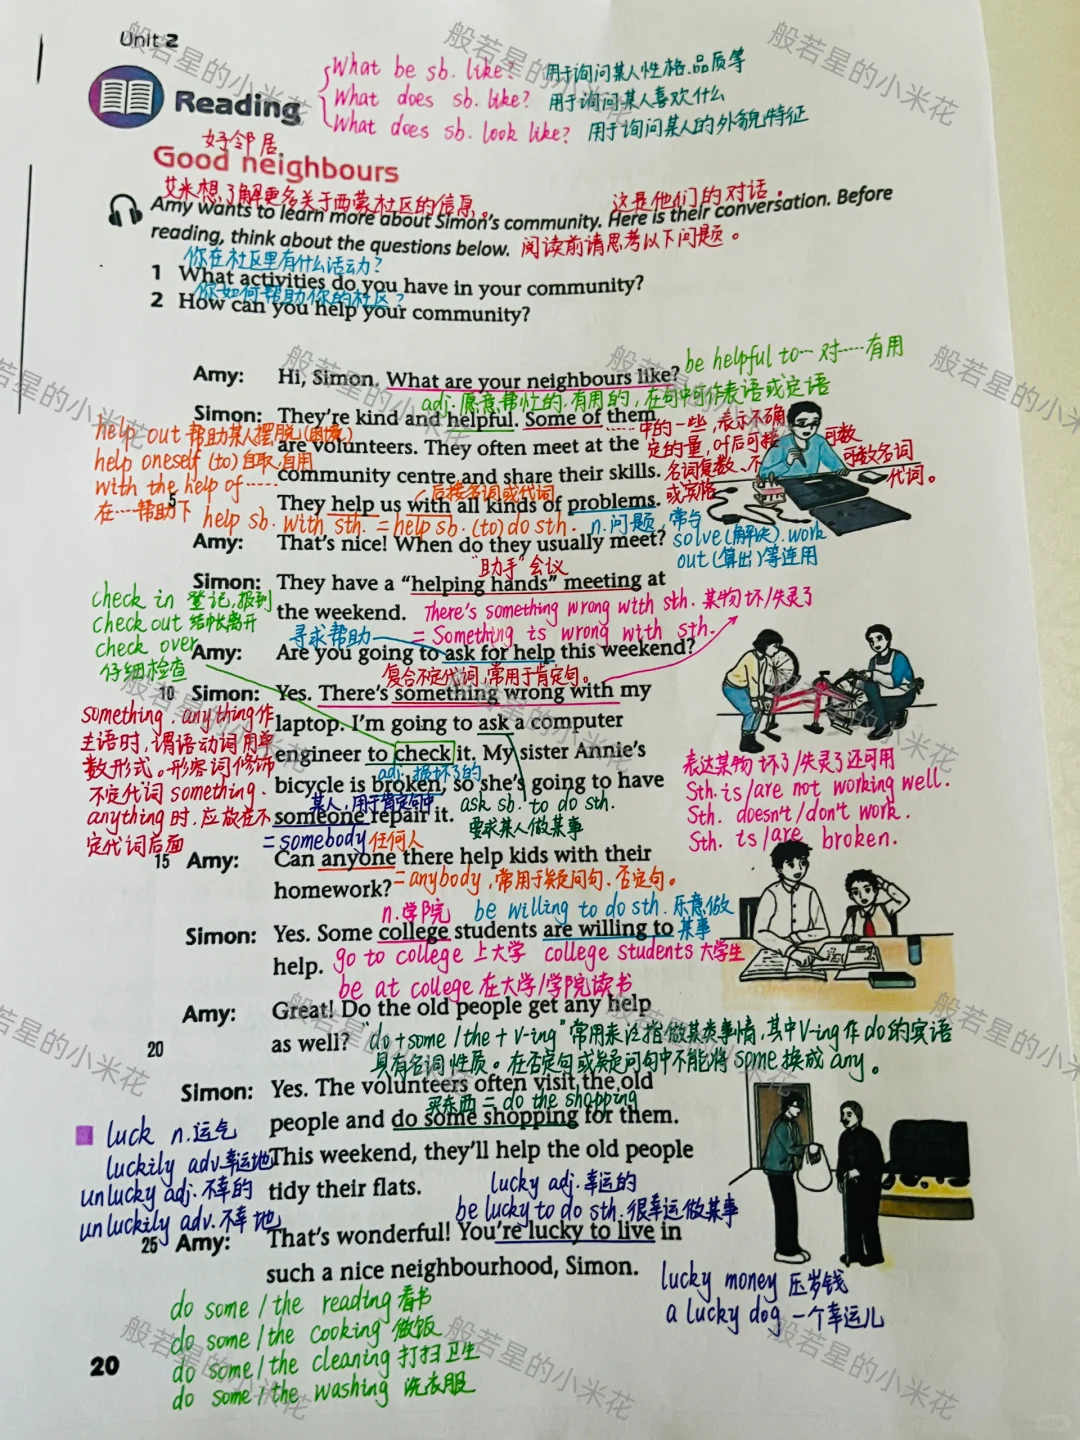 Unit 2
Reading
What be sb. like? 用于询问某人性格、品质等
What does sb. like? 用于询问某人喜欢什么
What does sb. look like? 用于询问某人的外貌特征
好邻居
Good neighbours
艾米想了解更多关于西蒙社区的信息。 这是他们的对话。
Amy wants to learn more about Simon's community. Here is their conversation. Before
reading, think about the questions below. 阅读前请思考以下问题。
你在社区里有什么活动?
1 What activities do you have in your community?
你如何帮助你的社区?
2 How can you help your community?
be helpful to… 对……有用
Amy: Hi, Simon. What are your neighbours like?
adj. 愿意帮忙的,有用的,在句中可作表语或定语
Simon: They're kind and helpful. Some of them
……中的一些,表示不确
定的量,of后可接
可数
名词复数、不
可数名词
或实格
代词。
are volunteers. They often meet at the
community centre and share their skills.
后接名词或代词
5 They help us with all kinds of problems.
help out 帮助某人摆脱(困境)
help oneself (to) 自取,自用
with the help of ……
在…帮助下
help sb. with sth. = help sb. (to) do sth.
n. 问题,常与
solve(解决).work
out(算出)等连用
Amy: That's nice! When do they usually meet?
"助手"会议
Simon: They have a "helping hands" meeting at
the weekend.
There's something wrong with sth. 某物坏/失灵了
= Something is wrong with sth.
寻求帮助
Amy: Are you going to ask for help this weekend?
check in 登记,报到
check out 结帐离开
check over
仔细检查
复合不定代词,常用于肯定句。
10 Simon: Yes. There's something wrong with my
laptop. I'm going to ask a computer
engineer to check it. My sister Annie's
adj. 损坏了的
bicycle is broken, so she's going to have
某人,用于肯定句中
someone repair it.
= somebody 任何人
ask sb. to do sth.
要求某人做某事
something, anything作
主语时,谓语动词用单
数形式。形容词修饰
不定代词something、
anything时,应放在不
定代词后面
表达某物坏了/失灵了还可用
Sth. is/are not working well.
Sth. doesn't/don't work.
Sth. is/are broken.
15 Amy: Can anyone there help kids with their
homework?
= anybody,常用于疑问句、否定句。
n. 学院
be willing to do sth. 乐意做
某事
Simon: Yes. Some college students are willing to
help.
go to college 上大学 college students 大学生
be at college 在大学/学院读书
Amy: Great! Do the old people get any help
20 as well?
"do+some/the+V-ing"常用来泛指做某类事情,其中V-ing作do的宾语
具有名词性质。在否定句或疑问句中不能将some换成any。
Simon: Yes. The volunteers often visit the old
买东西 = do the shopping
people and do some shopping for them.
This weekend, they'll help the old people
tidy their flats.
luck n. 运气
luckily adv. 幸运地
unlucky adj. 不幸的
unluckily adv. 不幸地
lucky adj. 幸运的
be lucky to do sth. 很幸运做某事
25 Amy: That's wonderful! You're lucky to live in
such a nice neighbourhood, Simon.
lucky money 压岁钱
a lucky dog 一个幸运儿
do some / the reading 看书
do some / the cooking 做饭
do some / the cleaning 打扫卫生
do some / the washing 洗衣服
20
般若星的小米花